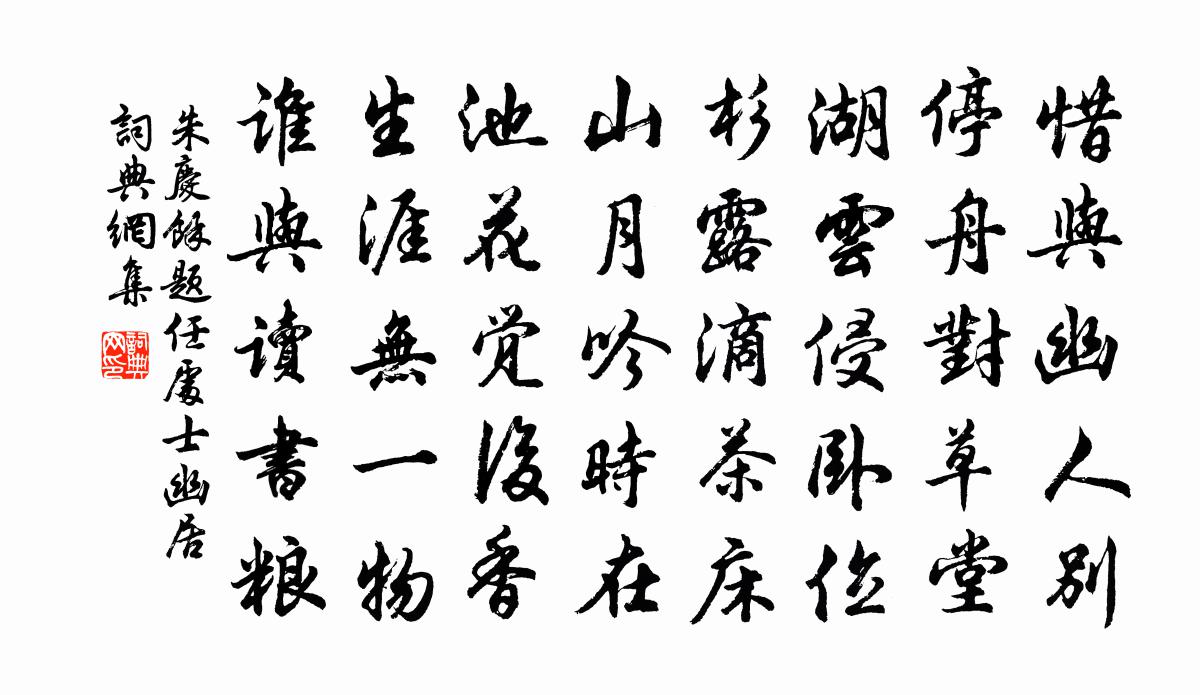 惜與幽人別
停舟對草堂
湖雲侵卧位
杉露滴茶床
山月吟時在
池花觉後香
生涯無一物
誰與讀書粮
朱慶餘題任處士幽居
詞典網集
詞典网印